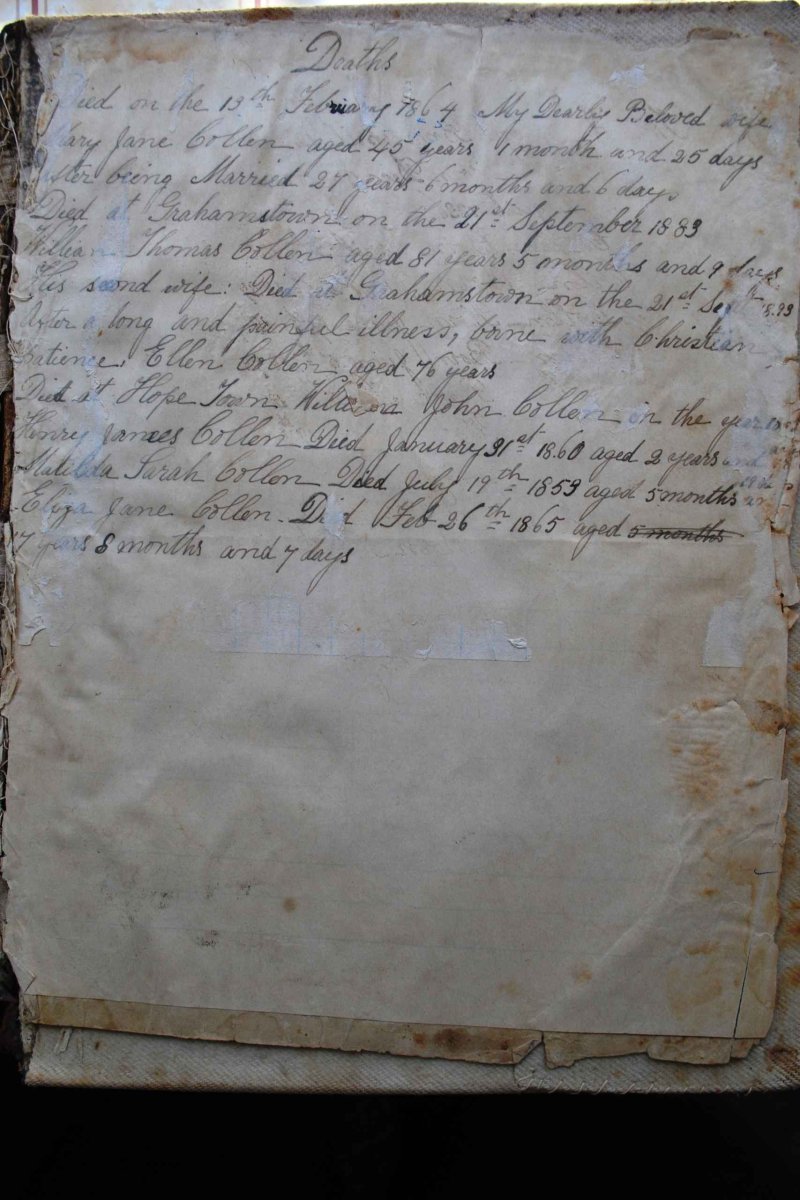 Deaths
Died on the 13th February 1864 My Dearly Beloved wife
Mary Jane Collen aged 45 years 1 month and 25 days
After being Married 27 years 6 months and 6 days
Died at Grahamstown on the 21st September 1883
William Thomas Collen aged 81 years 5 months and 9 days
His second wife: Died at Grahamstown on the 21st Sept 1893
After a long and painful illness, borne with Christian
Patience, Ellen Collen aged 76 years
Died at Hope Town William John Collen in the year
Henry James Collen Died January 31st 1860 aged 2 years and
Matilda Sarah Collen Died July 19th 1859 aged 5 months
Eliza Jane Collen. Died Feb 26th 1865 aged 5 months
17 years 8 months and 7 days